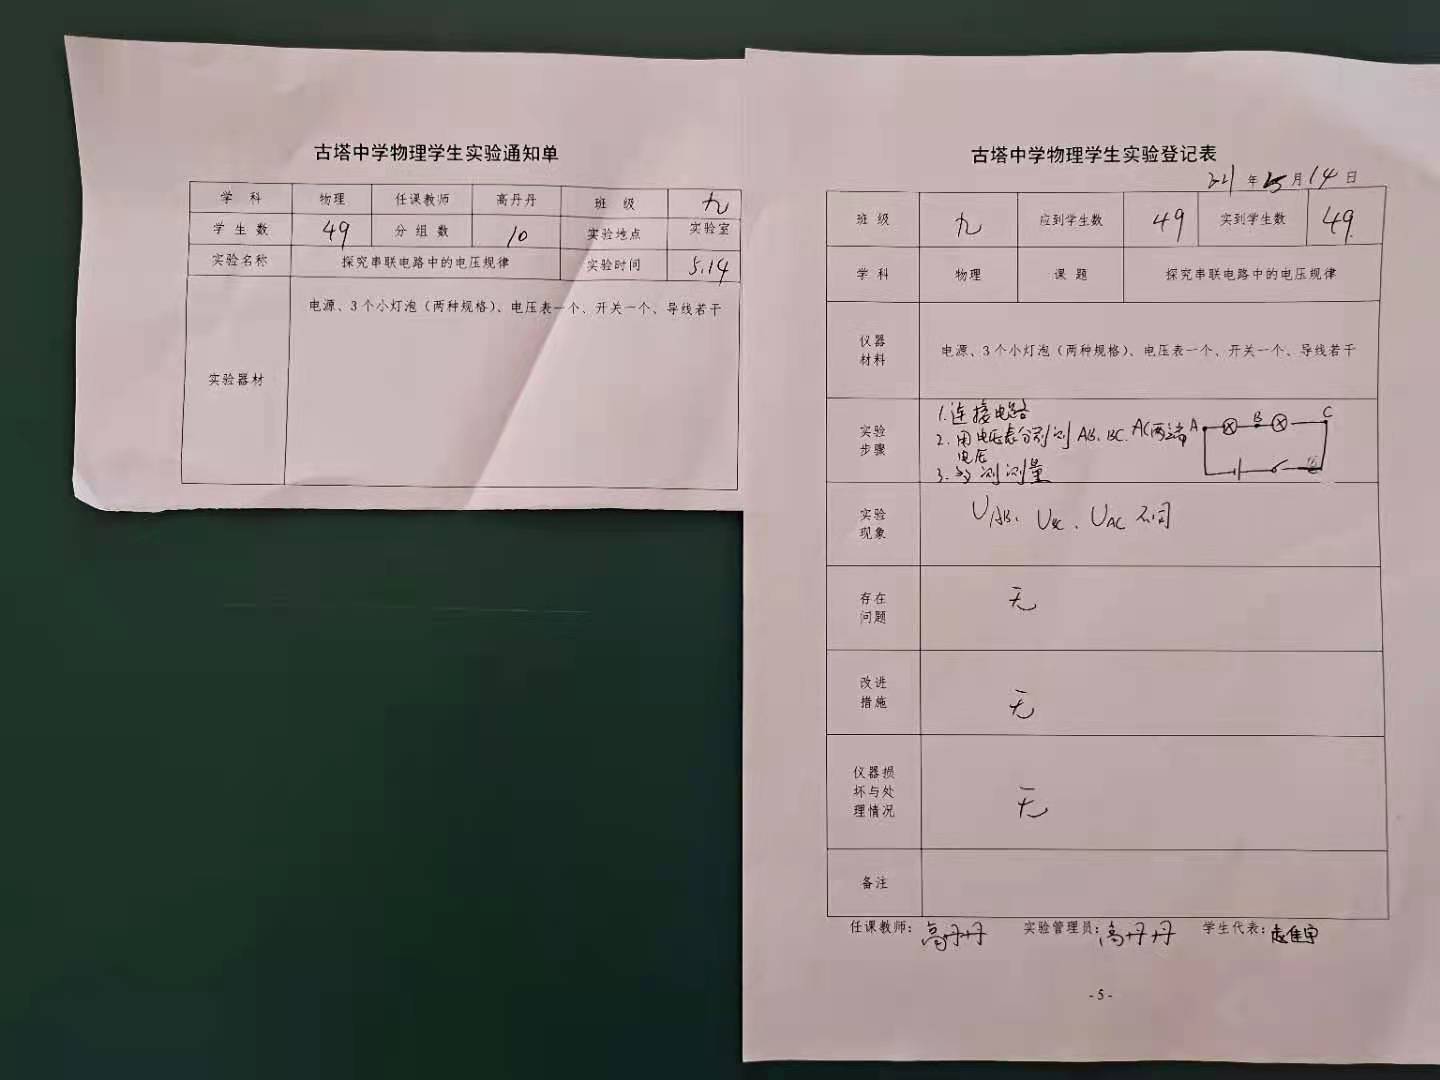 古塔中学物理学生实验通知单
学 科 物理 任课教师 高丹丹 班 级 九
学 生 数 49 分 组 数 10 实验地点 实验室
实验名称 探究串联电路中的电压规律 实验时间 5.14
实验器材 电源、3个小灯泡（两种规格）、电压表一个、开关一个、导线若干
古塔中学物理学生实验登记表
21 年 5 月 14 日
班 级 九 应到学生数 49 实到学生数 49
学 科 物理 课 题 探究串联电路中的电压规律
仪器
材料
电源、3个小灯泡（两种规格）、电压表一个、开关一个、导线若干
实验
步骤
1.连接电路
2.用电压表分别测AB、BC、AC两端
电压
3.多测测量
A B C
实验
现象
UAB、UBC、UAC不同
存在
问题
无
改进
措施
无
仪器损
坏与处
理情况
无
备注
任课教师：高丹丹 实验管理员：高丹丹 学生代表：
- 5 -